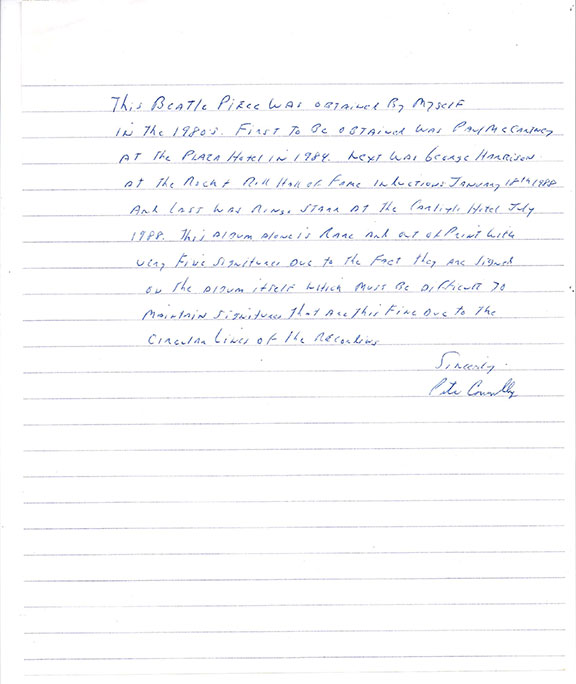 This Beatle Piece was obtained by myself
in the 1980s. First to be obtained was Paul McCartney
at the Plaza Hotel in 1984. Next was George Harrison
at the Rock & Roll Hall of Fame Inductions January 18th 1988
and last was Ringo Starr at the Carlyle Hotel July
1988. This album alone is rare and out of print with
very fine signitures due to the fact they are signed
on the album itself which must be difficult to
maintain signitures that are this fine due to the
circular lines of the recording
Sincerely
Pete Connolly